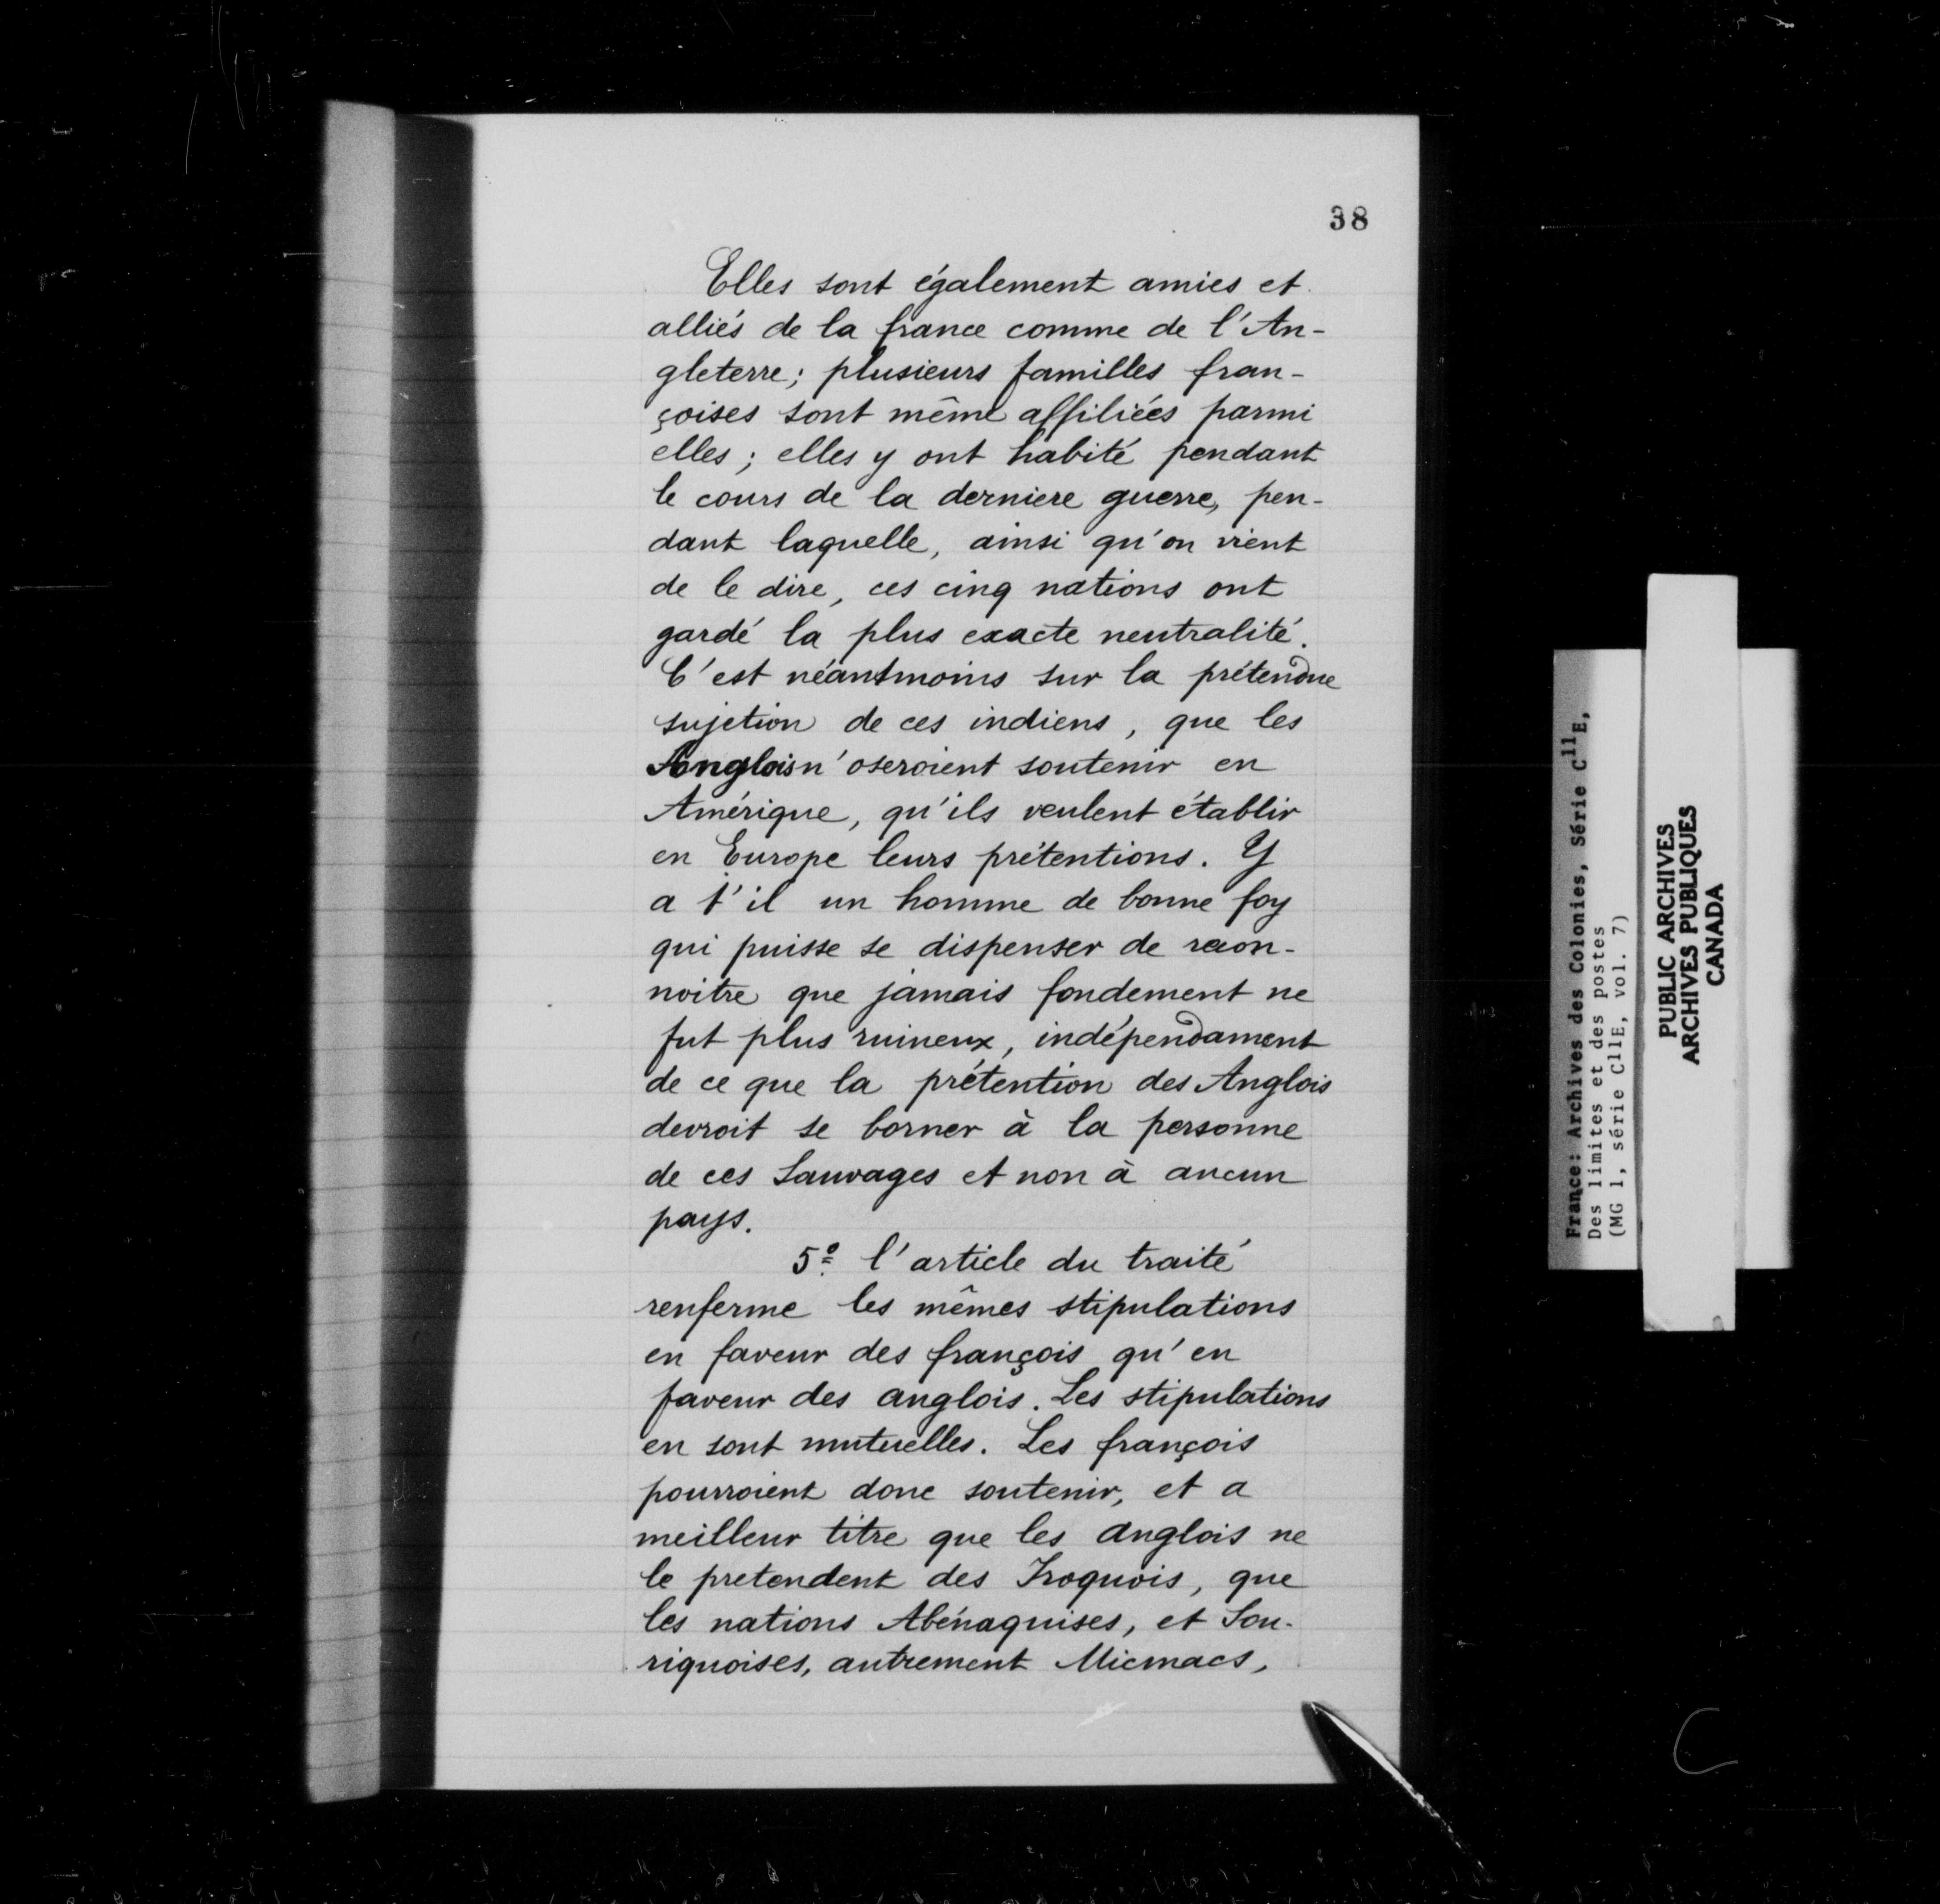 38
Elles sont également amies et
alliés de la france comme de l'An-
gleterre; plusieurs familles fran-
çoises sont même affiliées parmi
elles; elles y ont habité pendant
le cours de la derniere guerre, pen-
dant laquelle, ainsi qu'on vient
de le dire, ces cinq nations ont
gardé la plus exacte neutralité.
C'est néantmoins sur la prétendue
sujetion de ces indiens, que les
Anglois n'oseroient soutenir en
Amérique, qu'ils veulent établir
en Europe leurs prétentions. Y
a t'il un homme de bonne foy
qui puisse se dispenser de recon-
noitre que jamais fondement ne
fut plus ruineux, indépendament
de ce que la prétention des Anglois
devroit se borner à la personne
de ces Sauvages et non à aucun
pays.
5º l'article du traité
renferme les mêmes stipulations
en faveur des françois qu'en
faveur des anglois. Les stipulations
en sont mutuelles. Les françois
pourroient donc soutenir, et a
meilleur titre que les anglois ne
le pretendent des Iroquois, que
les nations Abénaquises, et Sou-
riquoises, autrement Micmacs,
France: Archives des Colonies, Série C11E,
Des limites et des postes
(MG 1, série C11E, vol. 7)
PUBLIC ARCHIVES
ARCHIVES PUBLIQUES
CANADA